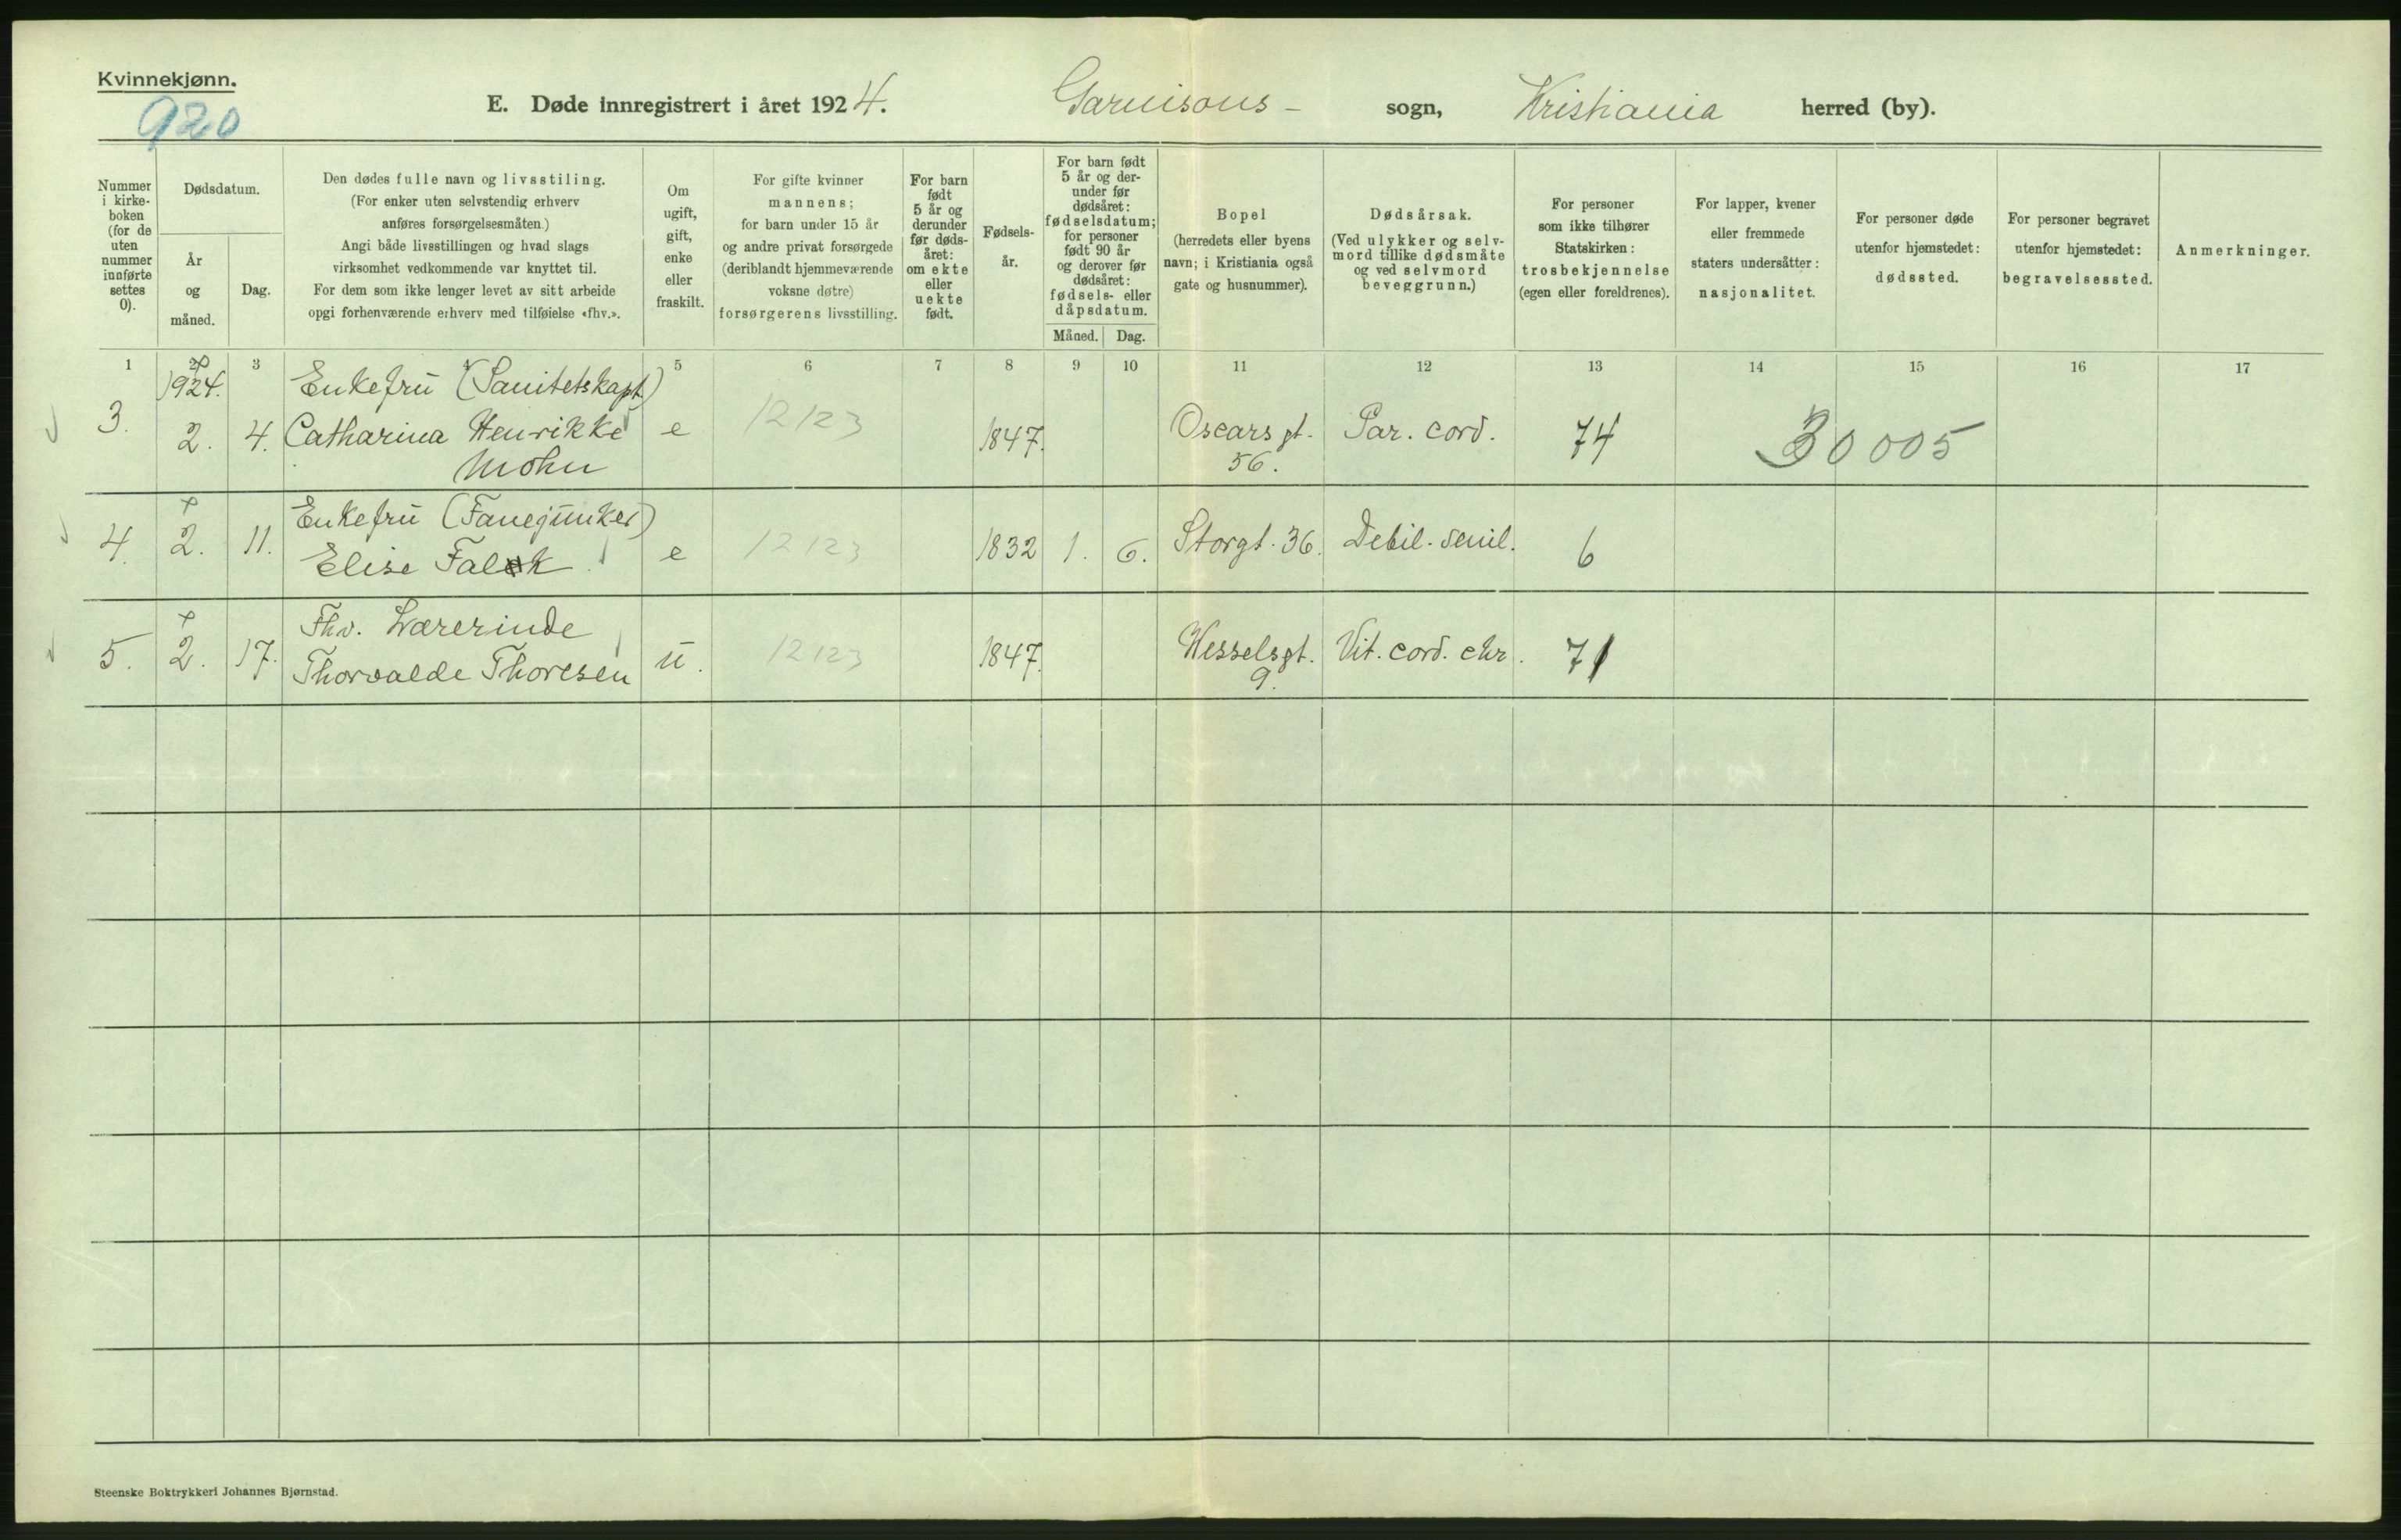 Kvinnekjønn.
920
E. Døde innregistrert i året 1924. Garnisons - sogn, Kristiania herred (by).
Nummer i kirkeboken (for de uten nummer innførte settes 0).
Dødsdatum.
År og måned.
Dag.
Den dødes fulle navn og livsstiling.
(For enker uten selvstendig erhverv
anføres forsørgelsesmåten)
Angi både livsstillingen og hvad slags
virksomhet vedkommende var knyttet til.
For dem som ikke lenger levet av sitt arbeide
opgi forhenværende erhverv med tilføielse «fhv.».
Om
ugift,
gift,
enke
eller
fraskilt.
For gifte kvinner
mannens;
for barn under 15 år
og andre privat forsørgede
(deriblandt hjemmeværende
voksne døtre)
forsørgerens livsstilling.
For barn
født
5 år og
derunder
før døds-
året:
om ekte
eller
uekte
født.
Fødsels-
år.
For barn født
5 år og der-
under før
dødsåret:
fødselsdatum;
for personer
født 90 år
og derover før
dødsåret:
fødsels- eller
dåpsdatum.
Måned. Dag.
Bopel
(herredets eller byens
navn; i Kristiania også
gate og husnummer).
Dødsårsak.
(Ved ulykker og selv-
mord tillike dødsmåte
og ved selvmord
beveggrunn.)
For personer
som ikke tilhører
Statskirken:
trosbekjennelse
(egen eller foreldrenes).
For lapper, kvener
eller fremmede
staters undersåtter:
nasjonalitet.
For personer døde
utenfor hjemstedet:
dødssted.
For personer begravet
utenfor hjemstedet:
begravelsessted.
Anmerkninger.
1 2 3 4 5 6 7 8 9 10 11 12 13 14 15 16 17
1924. Enkefru (Sanitetskapt.)
3. 2. 4. Catharina Henrikke e 12123 1847. Oscars gt. Par. cord. 74 30005
Mohn 56.
Enkefru (Fanejunker)
4. 2. 11. Elise Falk e 12123 1832 1. 6. Storgt. 36. Debil. senil. 6
Fhv. Lærerinde
5. 2. 17. Thorvalde Thoresen u. 12123 1847. Wesselsgt. Vit. cord. chr. 71
9.
Steenske Boktrykkeri Johannes Bjørnstad.